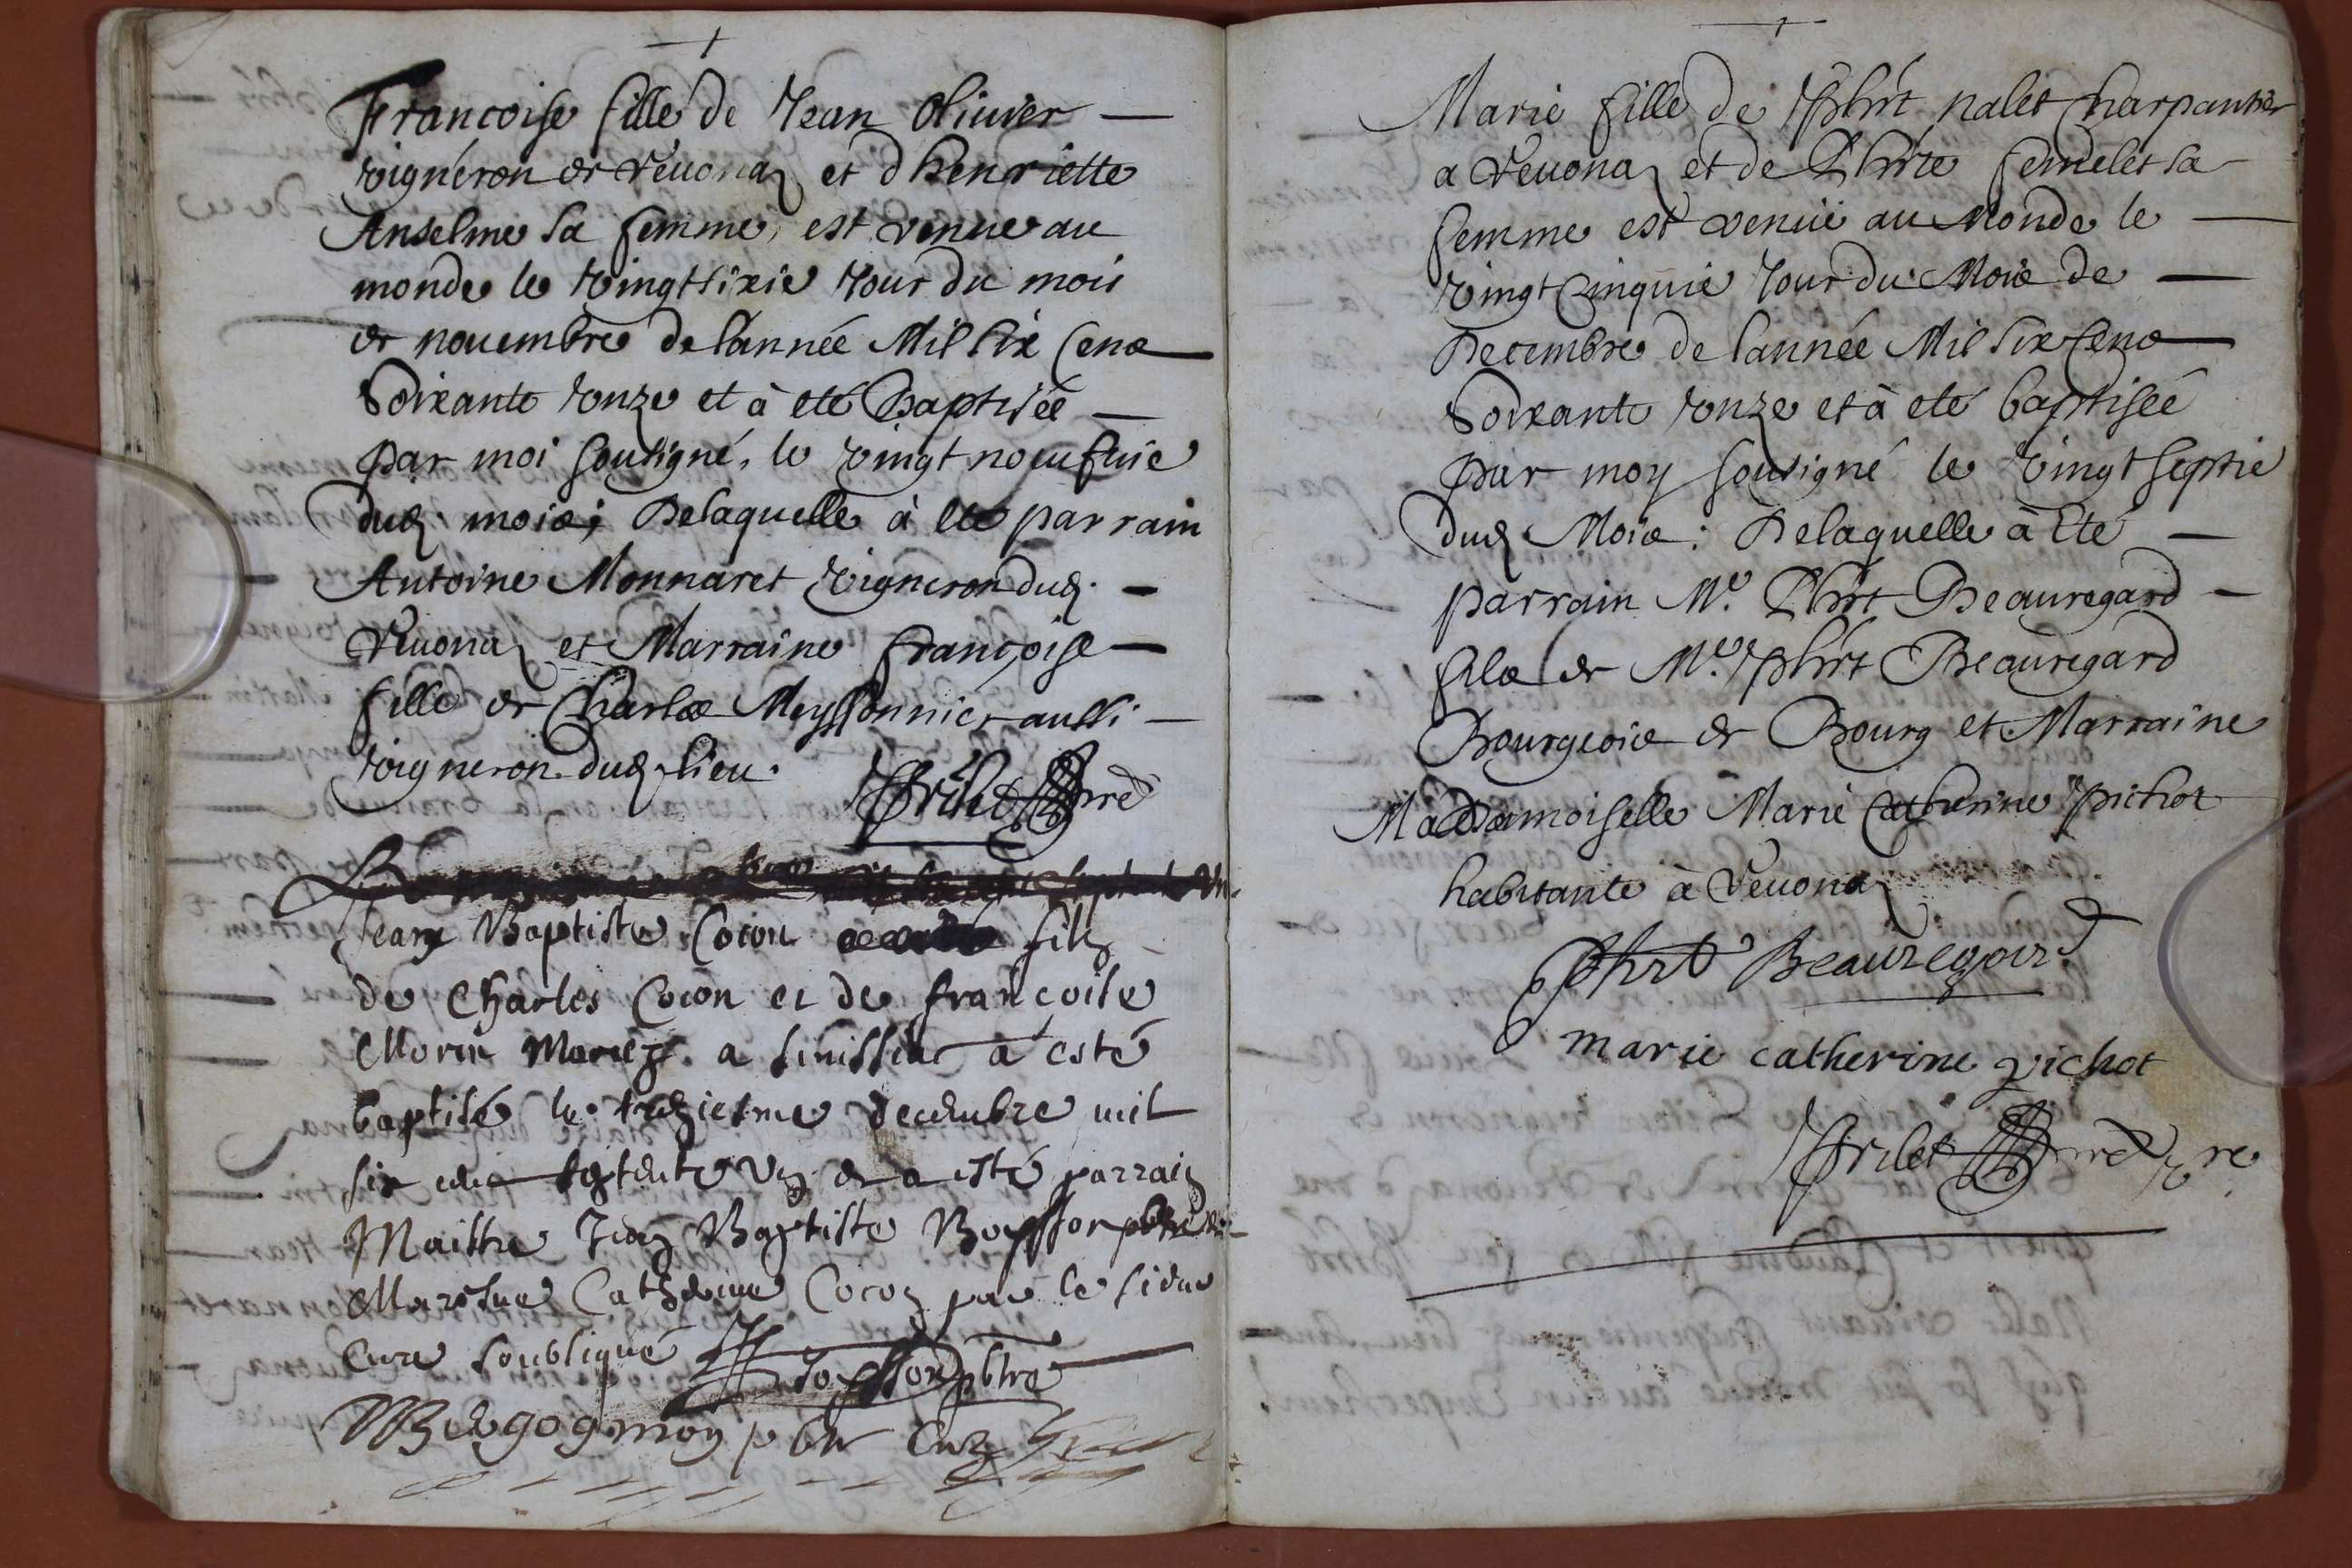 Francoise fille de Jean Oliuier
vigneron de Veuonaz et d'henriette
Anselme sa femme, est venue au
monde le vingt sixie Jour du mois
de nouembre de l'année Mil six Cens
Soixante &onze et à eté Baptisée
par moi sousigné, le vingt neufuie
dud. mois; De laquelle à eté parrain
Antoine Monnaret vigneron dud.
Veuonaz et Marraine françoise
fille de Charles Meyssonnier aussi
vigneron dud. lieu.
Jean Baptiste Cocon filz
de Charles Cocon et de francoise
Morin Mariez a a esté
baptisé le treziesme decembre mil
six cens septente vn et a esté parrain
Maistre Jean Baptiste Boysson pbtre et
Marrine Catherine Cocon par le sieur
Cure soubsigné
Boysson pbtre
Marie fille de Phirt palet Charpantier
a Veuonaz et de Phirte femelet sa
femme est venuë au Monde le
vingt Cinquie Jour du Mois de
Decembre de l'année Mil six Cens
Soixante &onze et à eté baptisée
par moy sousigné le vingt septie
dud. Mois: De laquelle à Eté
parrain Me. Phirt Beauregard
fils de Me. Phirt Beauregard
Bourgeois de Bourg et Marraine
Madamoiselle Marie Catherine pichot
habitante à Veuonaz
Phirt Beauregard
marie catherine pichot